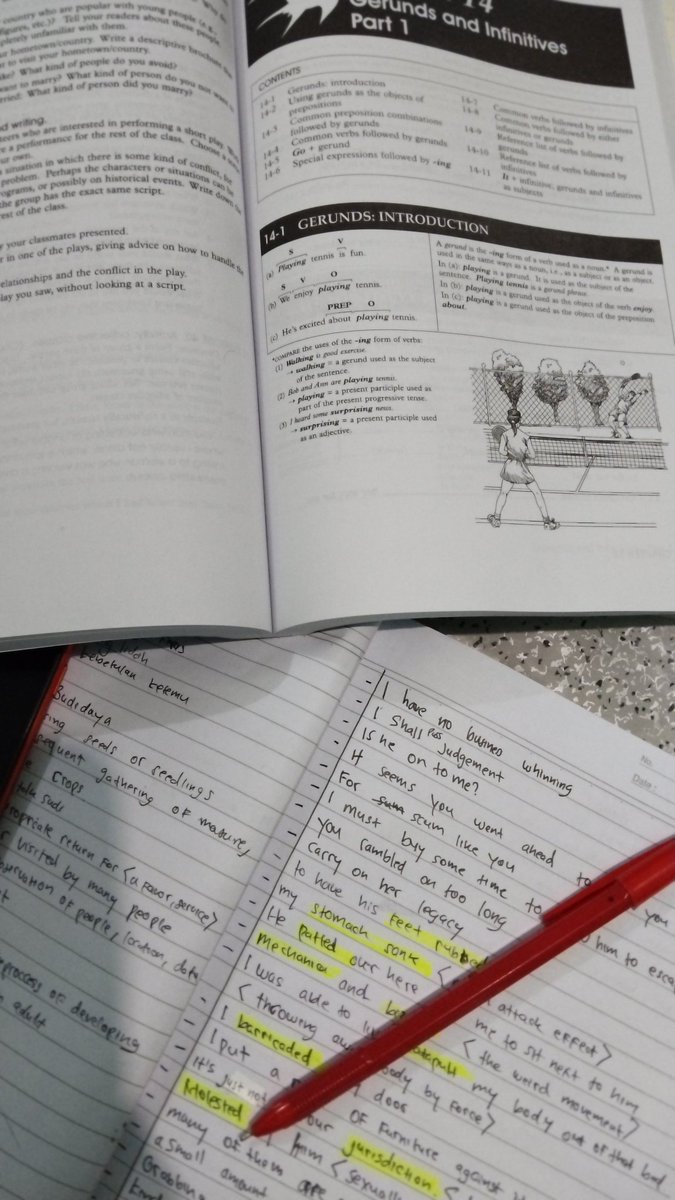 country who are popular with young people (e.g.,
figures, etc.)? Tell your readers about these people
completely unfamiliar with them.
your hometown/country. Write a descriptive brochure
to visit your hometown/country.
like? What kind of people do you avoid?
want to marry? What kind of person do you not want
married: What kind of person did you marry?
nd writing.
who are interested in performing a short play.
a performance for the rest of the class. Choose a
ur own.
situation in which there is some kind of conflict,
problem. Perhaps the characters or situations can be
ograms, or possibly on historical events. Write down the
the group has the exact same script.
est of the class.
y your classmates presented.
r in one of the plays, giving advice on how to handle the
elationships and the conflict in the play.
lay you saw, without looking at a script.
14
Gerunds and Infinitives
Part 1
CONTENTS
14-1 Gerunds: introduction
14-2 Using gerunds as the objects of
prepositions
14-3 Common preposition combinations
followed by gerunds
14-4 Common verbs followed by gerunds
14-5 Go + gerund
14-6 Special expressions followed by -ing
14-7 Common verbs followed by infinitives
14-8 Common verbs followed by either
infinitives or gerunds
14-9 Reference list of verbs followed by
gerunds
14-10 Reference list of verbs followed by
infinitives
14-11 It + infinitive; gerunds and infinitives
as subjects
14-1 GERUNDS: INTRODUCTION
S V
(a) Playing tennis is fun.
S V O
(b) We enjoy playing tennis.
PREP O
(c) He's excited about playing tennis.
A gerund is the -ing form of a verb used as a noun.* A gerund is
used in the same ways as a noun, i.e., as a subject or as an object.
In (a): playing is a gerund. It is used as the subject of the
sentence. Playing tennis is a gerund phrase.
In (b): playing is a gerund used as the object of the verb enjoy.
In (c): playing is a gerund used as the object of the preposition
about.
*COMPARE the uses of the -ing form of verbs:
(1) Walking is good exercise.
→ walking = a gerund used as the subject
of the sentence.
(2) Bob and Ann are playing tennis.
→ playing = a present participle used as
part of the present progressive tense.
(3) I heard some surprising news.
→ surprising = a present participle used
as an adjective.
kebetulan ketemu
Budidaya
seeds or seedlings
sequent gathering of mature
crops
propriate return for <a favor, service>
visited by many people
observation of people, location, data
process of developing
adult
No.
Date:
- I have no busines whinning
- I shall pass judgement
- Is he on to me?
- It seems you went ahead to you
- For scum like you
- I must buy some time to him to escape
- You rambled on too long
- Carry on her legacy
- to have his feet rubbed
- my stomach sank < attack effect>
- He patted our here me to sit next to him
- mechanism and < the weird movement>
- I was able to catapult my body out of that bed
< throwing body by force>
- I barricaded door
- I put a of furniture against
- It's just not our jurisdiction
- Molested him <sexually
- many of them are
a small amount